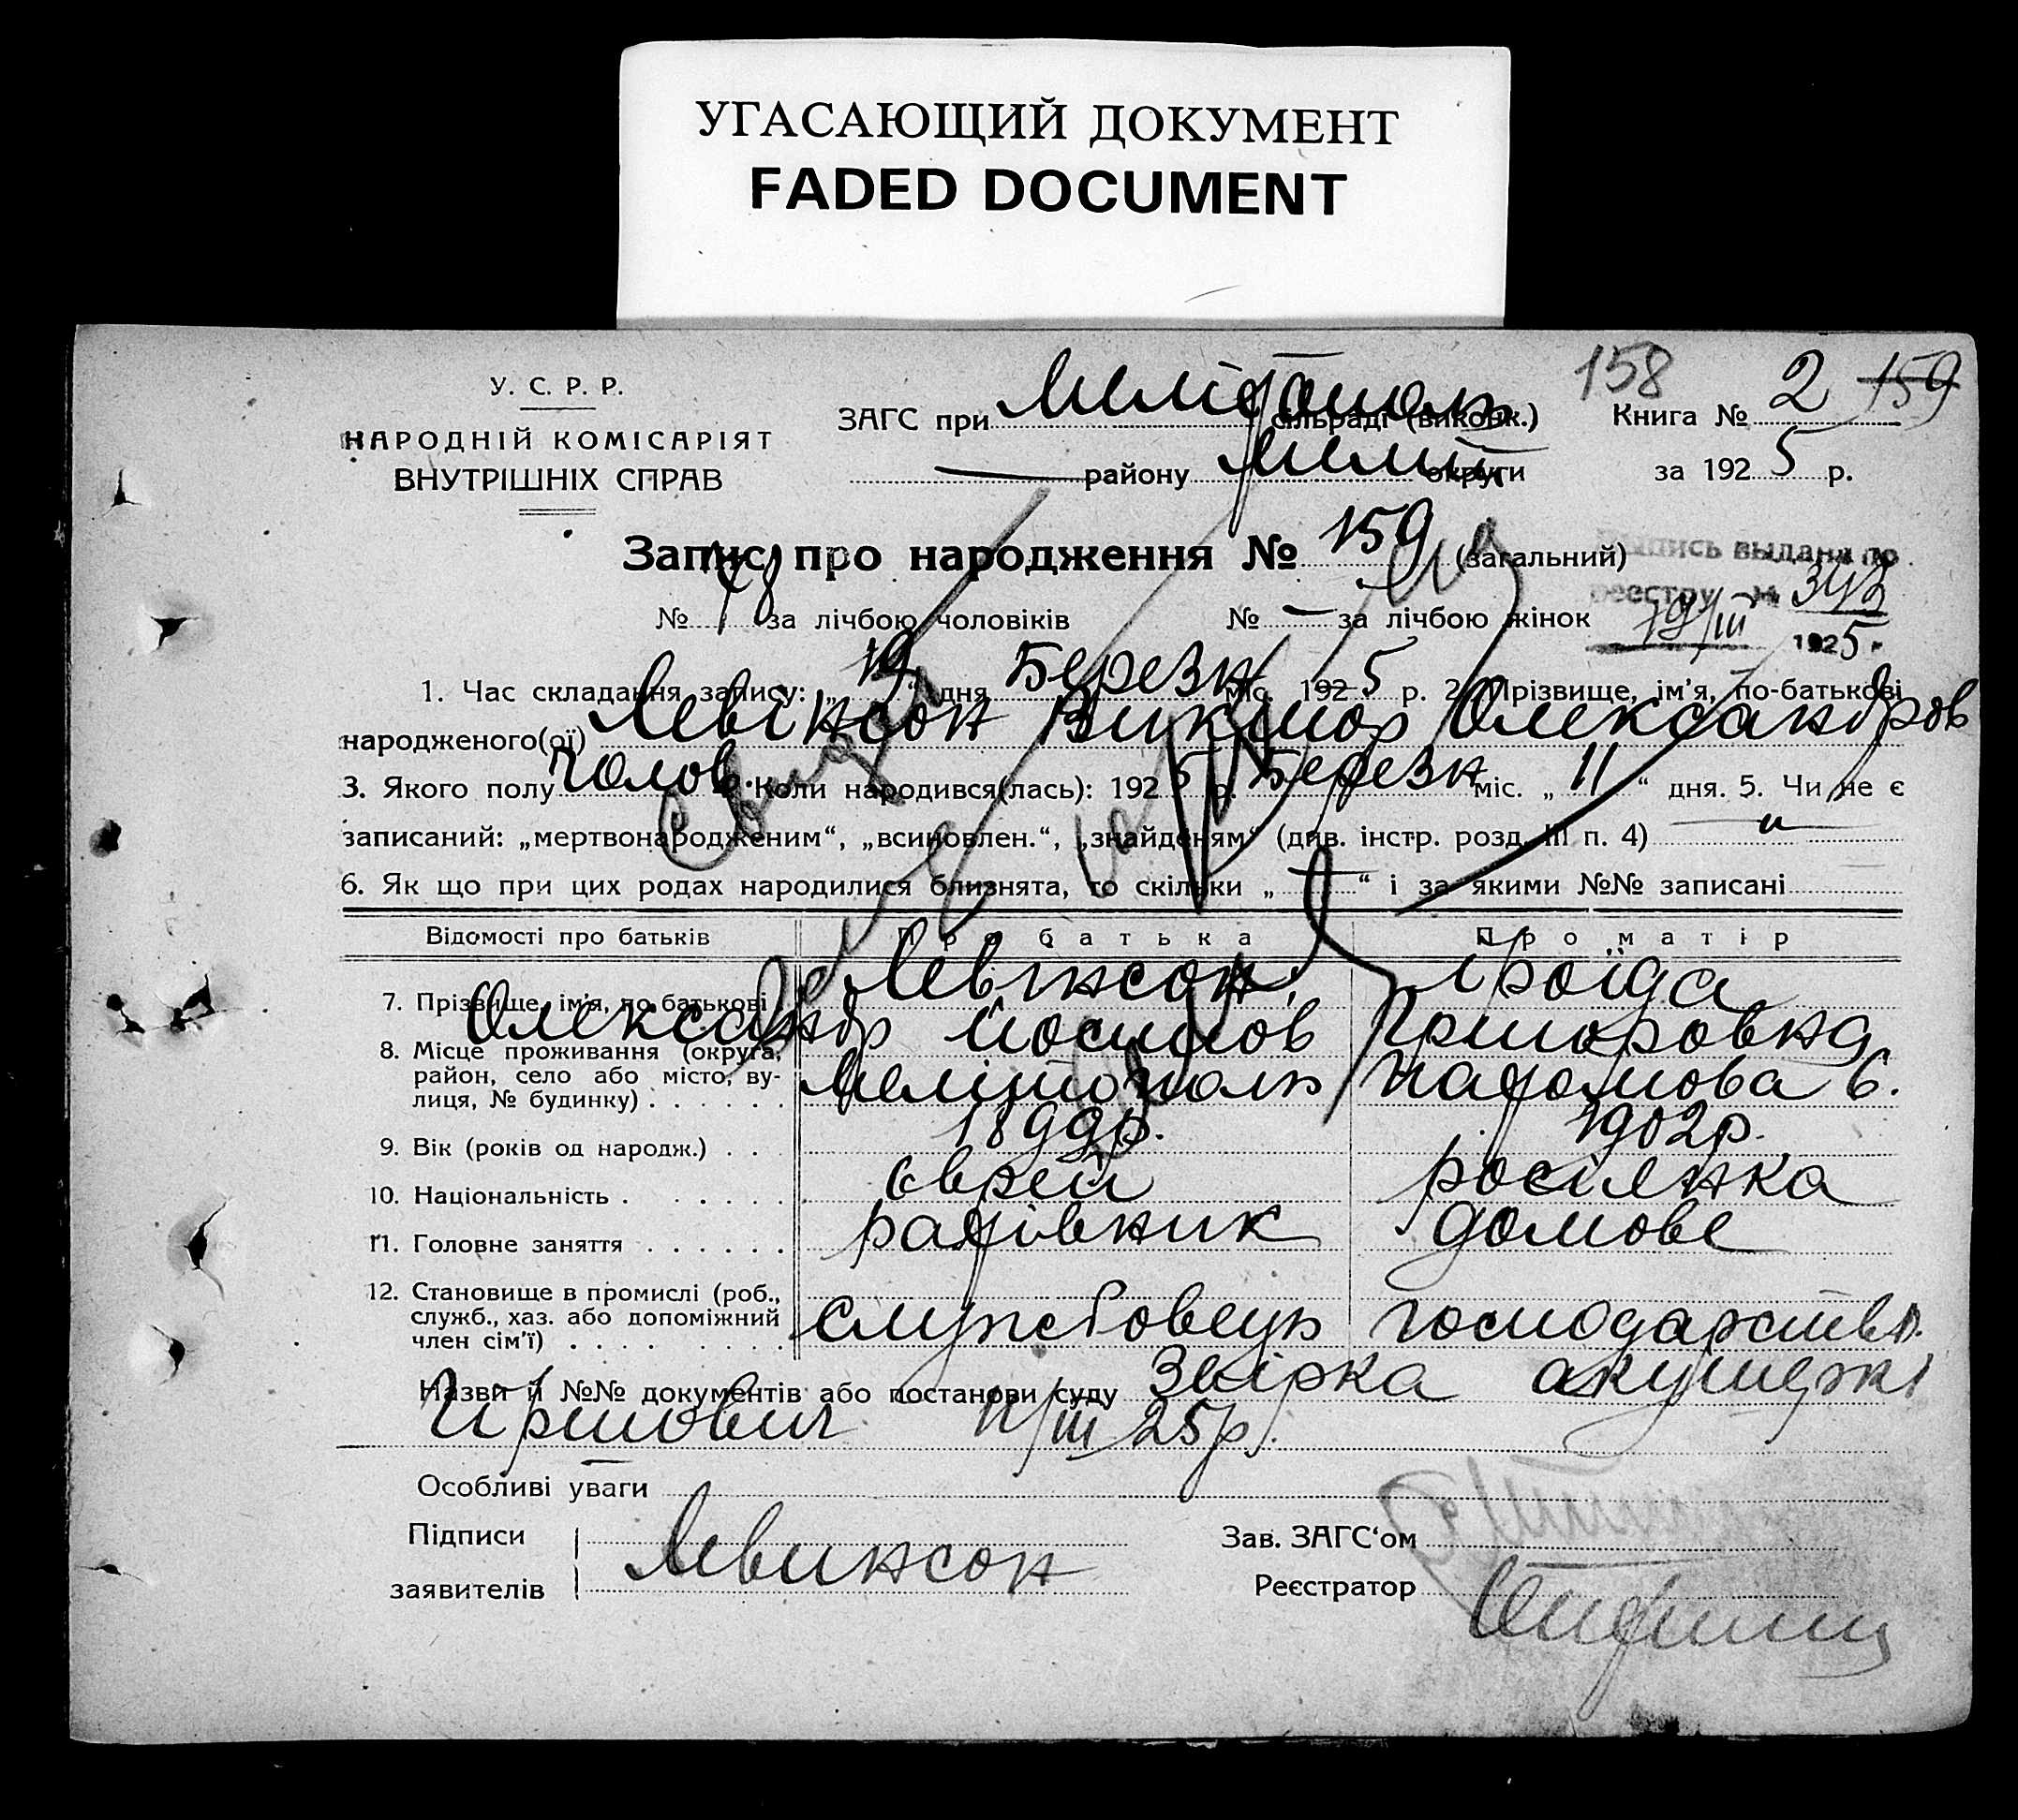 УГАСАЮЩИЙ ДОКУМЕНТ
FADED DOCUMENT
158
У. С. Р. Р.
НАРОДНІЙ КОМІСАРІЯТ
ВНУТРІШНІХ СПРАВ
ЗАГС при Мелітополь сільраді (виконк.) Книга № 2 159
— району Меліт округи за 1925 р.
Запис про народження № 159 (загальний)
Выпись выдана по
реестру № 343
19/III 1925 г.
№ 78 за лічбою чоловіків № — за лічбою жінок
1. Час складання запису: „ 19 “ дня Березн міс. 1925 р. 2. Прізвище, ім’я, по-батькові
народженого(ої) Левінсон Виктор Олександров
3. Якого полу чолов. Коли народився(лась): 1925 р. Березн міс. „ 11 “ дня. 5. Чи не є
записаний: „мертвонародженим“, „всиновлен.“, „знайденям“ (див. інстр. розд. III п. 4)
6. Як що при цих родах народилися близнята, то скільки „ — “ і за якими №№ записані
Відомості про батьків Про батька Про матір
7. Прізвище, ім’я, по-батькові Левінсон, Іроїда
Олександр Йосипов
8. Місце проживання (округа, район, село або місто, ву-
лиця, № будинку) Мелітополь 6.
9. Вік (років од народж.) 1899р. 1902р.
10. Національність Єврей росіянка
11. Головне заняття рахівник домове
12. Становище в промислі (роб.,
служб., хаз. або допоміжний
член сім’ї) службовець господарств.
Назви й №№ документів або постанови суду Звірка акушерки
11/III 25р.
Особливі уваги
Підписи Левинсон Зав. ЗАГС‘ом
заявителів Реєстратор